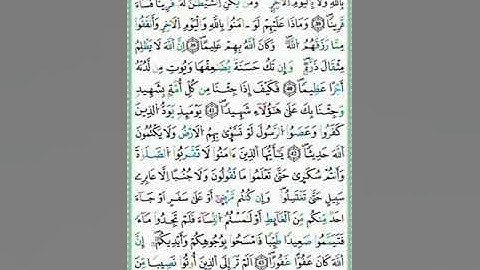 بِاللَّهِ وَلَا بِالْيَوْمِ اِلَاخِرِ وَمَنْ يَّكُنِ اِلشَّيْطَٰنُ لَهُۥ قَرِينًا فَسَآءَ
قَرِينًا ۝ وَمَاذَا عَلَيْهِمْ لَوَ ـامَنُوا بِاللَّهِ وَالْيَوْمِ اِلَاخِرِ وَأَنفَقُوا
مِمَّا رَزَقَهُمُ اللَّهُ وَكَانَ اللَّهُ بِهِمْ عَلِيمًا ۝ إِنَّ اَللَّهَ لَا يَظْلِمُ
مِثْقَالَ ذَرَّةٍ وَإِن تَكُ حَسَنَةٌ يُضَٰعِفْهَا وَيُوتِ مِن لَّدُنْهُ
أَجْرًا عَظِيمًا ۝ فَكَيْفَ إِذَا جِئْنَا مِن كُلِّ أُمَّةٍ بِشَهِيدٍ
وَجِئْنَا بِكَ عَلَىٰ هَٰٓؤُلَآءِ شَهِيدًا ۝ يَوْمَئِذٍ يَوَدُّ الذِينَ
كَفَرُوا وَعَصَوُا اُلرَّسُولَ لَوْ تَسَّوَّىٰ بِهِمُ اُلَارْضُ وَلَا يَكْتُمُونَ
اَللَّهَ حَدِيثًا ۝ يَٰٓأَيُّهَا اَلذِينَ ءَامَنُوا لَا تَقْرَبُوا اُلصَّلَوٰةَ
وَأَنتُمْ سُكَٰرَىٰ حَتَّىٰ تَعْلَمُوا مَا تَقُولُونَ وَلَا جُنُبًا اِلَّا عَابِرِي
سَبِيلٍ حَتَّىٰ تَغْتَسِلُوا وَإِن كُنتُم مَّرْضَىٰٓ أَوْ عَلَىٰ سَفَرٍ اَوْ جَآءَ
احَدٌ مِّنكُم مِّنَ اَلْغَآئِطِ أَوْ لَٰمَسْتُمُ اُلنِّسَآءَ فَلَمْ تَجِدُوا مَآءً
فَتَيَمَّمُوا صَعِيدًا طَيِّبًا فَامْسَحُوا بِوُجُوهِكُمْ وَأَيْدِيكُمْ إِنَّ
اَللَّهَ كَانَ عَفُوًّا غَفُورًا ۝ اَلَمْ تَرَ إِلَى اَلذِينَ أُوتُوا نَصِيبًا مِّنَ